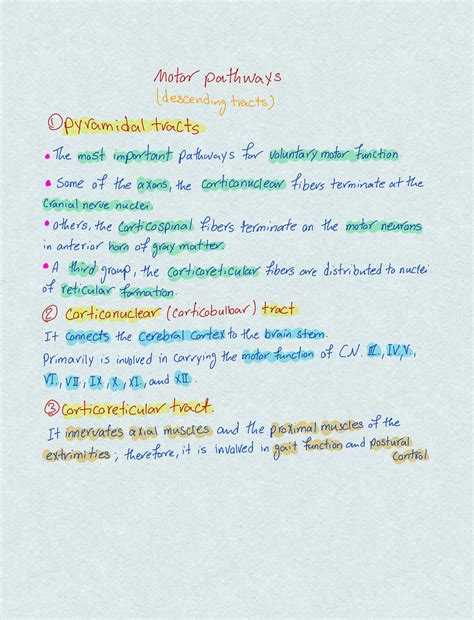 Motor pathways
(descending tracts)
① Pyramidal tracts
• The most important pathways for voluntary motor function
• Some of the axons, the corticonuclear fibers terminate at the
cranial nerve nuclei.
• Others, the corticospinal fibers terminate on the motor neurons
in anterior horn of gray matter
• A third group, the corticoreticular fibers are distributed to nuclei
of reticular formation.
② Corticonuclear (corticobulbar) tract
It connects the cerebral cortex to the brain stem.
Primarily is involved in carrying the motor function of C.N. III, IV, V,
VI, VII, IX, X, XI, and XII.
③ Corticoreticular tract.
It innervates axial muscles and the proximal muscles of the
extrimities; therefore, it is involved in gait function and postural
control.